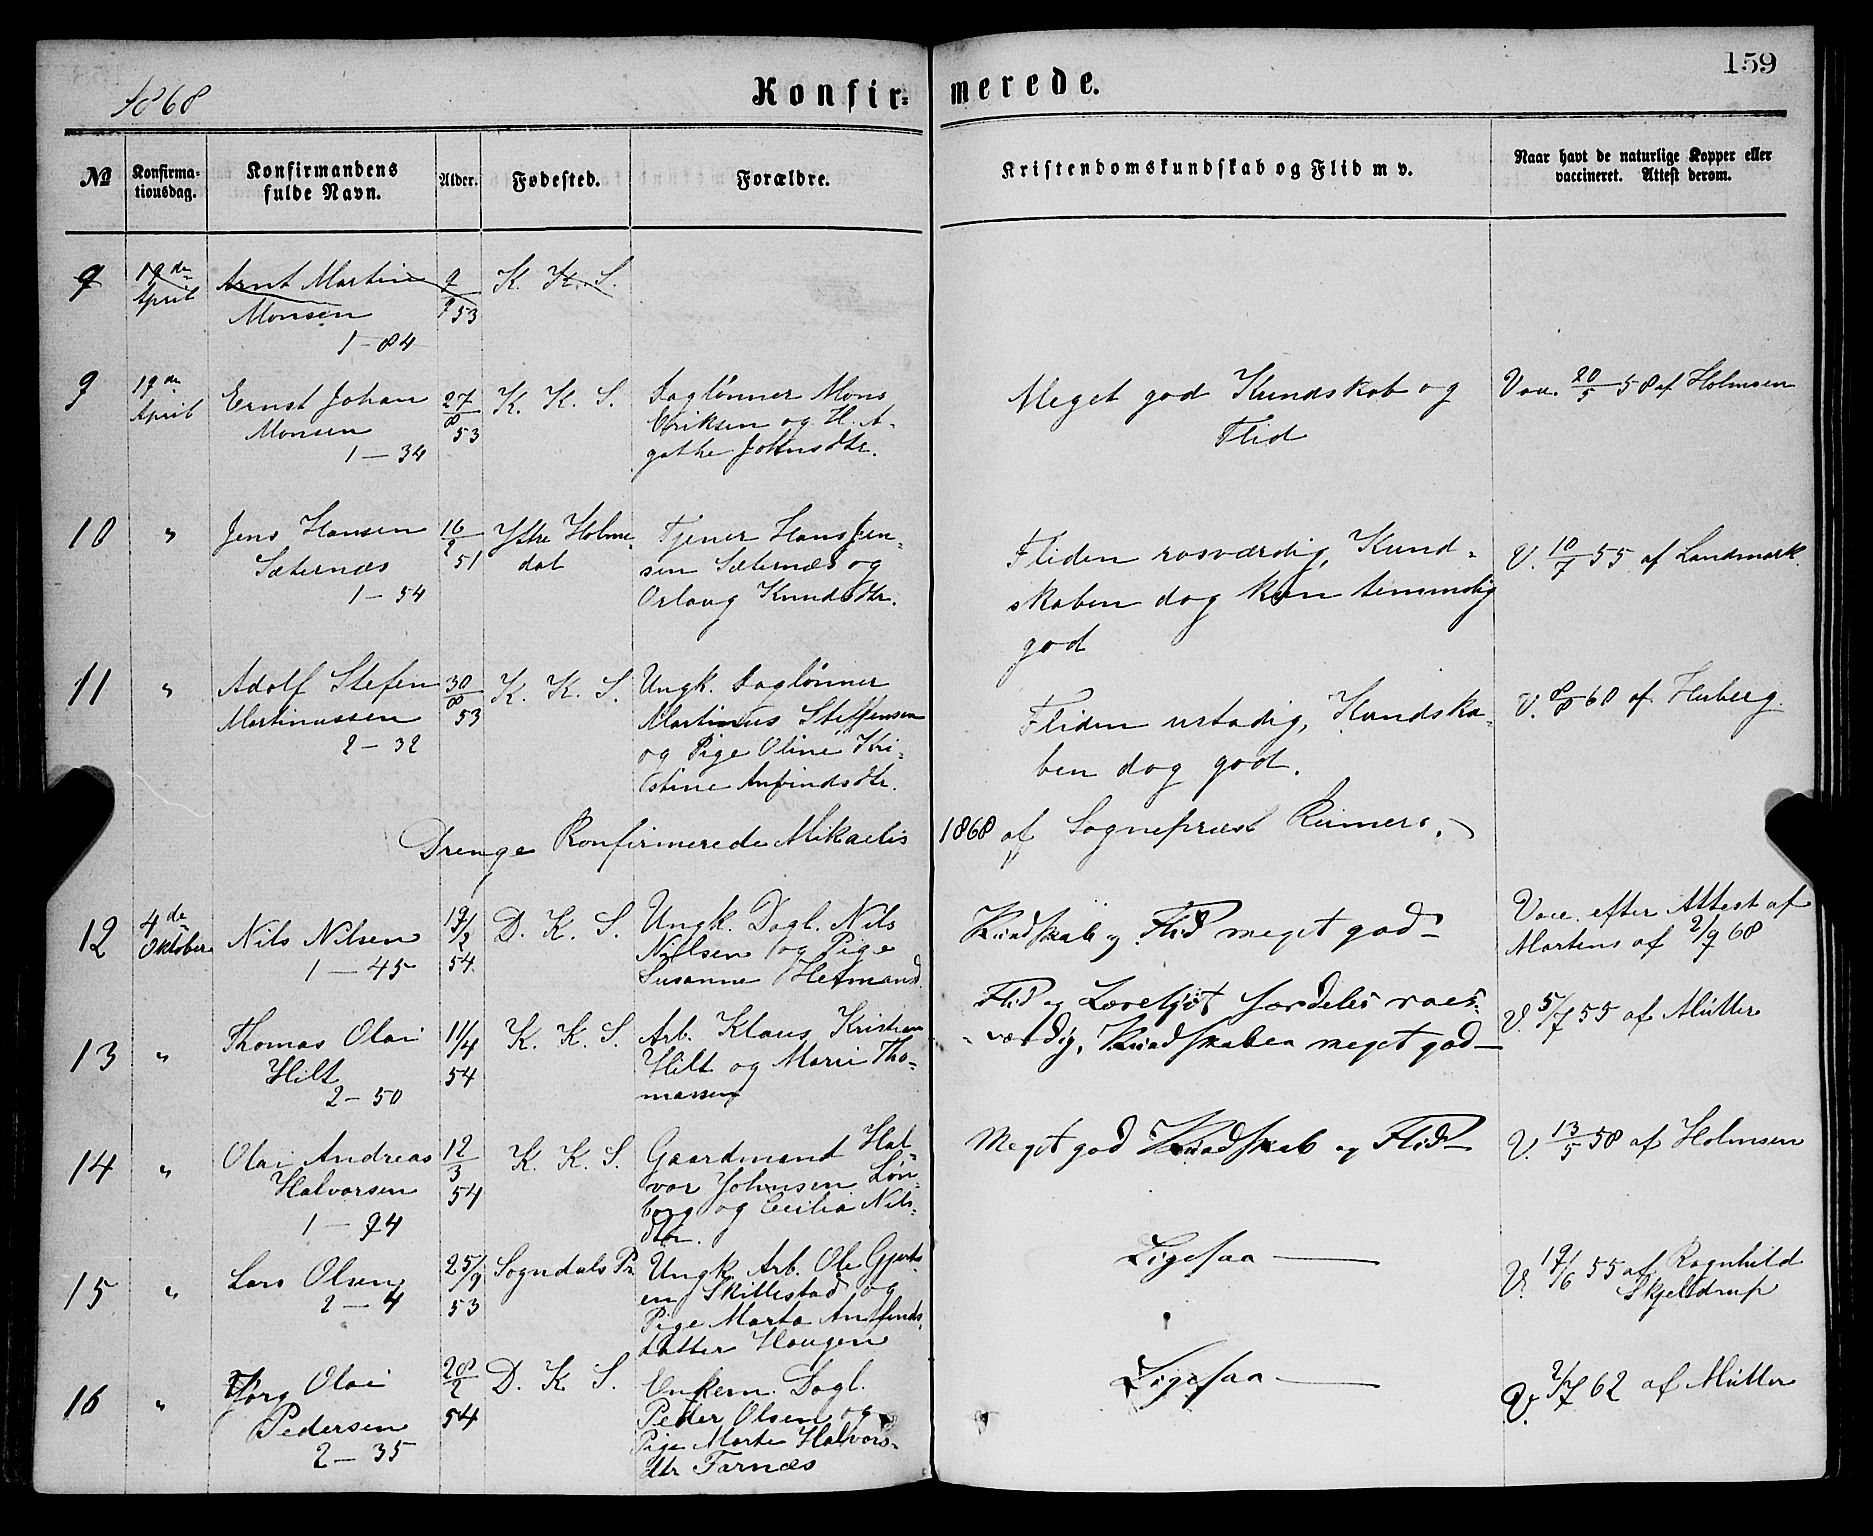 159
1868
Konfir=merede.
№
Konfirma-
tionsdag.
Konfirmandens
fulde Navn.
Alder.
Fødested.
Forældre.
Kristendomskundskab og Flid m v.
Naar havt de naturlige Kopper eller
vaccineret. Attest derom.
9 19de April Arnt Martin Monsen 1-84 9/9 53 K. K. S.
9 19de April Ernst Johan Monsen 1-34 27/8 53 K. K. S.
Daglønner Mons
Eriksen og H. A-
gathe Johnsdtr.
Meget god Kundskab og
Flid
Vac. 20/5 58 af Holmsen
10 " Jens Hansen Sæternæs 1-54 16/2 51 Ytre Holme-
dal
Tjener Hans Jen-
sen Sæternæs og
Orlaug Knudsdtr.
Fliden rosværdig, Kund-
skaben dog kun temmelig
god
V. 10/7 55 af Landmark.
11 " Adolf Stefen Martinussen 2-32 30/8 53 K. K. S.
Ungk. Daglønner
Martinus Steffensen
og Pige Oline Kri-
stine Anfindsdtr.
Fliden ustadig, Kundska-
ben dog god.
V. 8/8 60 af Herberg.
Drenge Konfirmerede Mikaelis 1868 af Sognepræst Reimers.
12 4de Oktober Nils Nilsen 1-45 19/2 54 D. K. S.
Ungk. Dagl. Nils
Nilsen og Pige
Susanne Hermansd
Kundskab og Flid meget god
Vac. efter Attest af
Martens af 2/9 68
13 " Thomas Olai Hilt 2-50 11/4 54 K. K. S.
Arb. Klaus Kristian
Hilt og Marie Tho-
massen
Flid og Lærelyst særdeles roes-
værdig, Kundskaben meget god
V. 5/7 55 af Müller
14 " Olai Andreas Halvorsen 1-94 12/3 54 K. K. S.
Gaardmand Hal-
vor Johnsen Løn-
borg og Cecilia Nils-
dtr.
Meget god Kundskab og Flid
V. 13/5 58 af Holmsen
15 " Lars Olsen 2-4 25/9 53 Sogndals Pr.
Ungk. Arb. Ole Gjerts-
en Skillestad og
Pige Marta Anfinds-
datter Haugen
Ligesaa
V. 19/6 55 af Ragnhild
Skjeldrup
16 " Olai Pedersen 2-35 28/2 54 D. K. S.
Enkem. Dagl.
Peder Olsen og
Pige Marte Halvors-
dtr Farnæs
Ligesaa
V. 2/7 62 af Müller